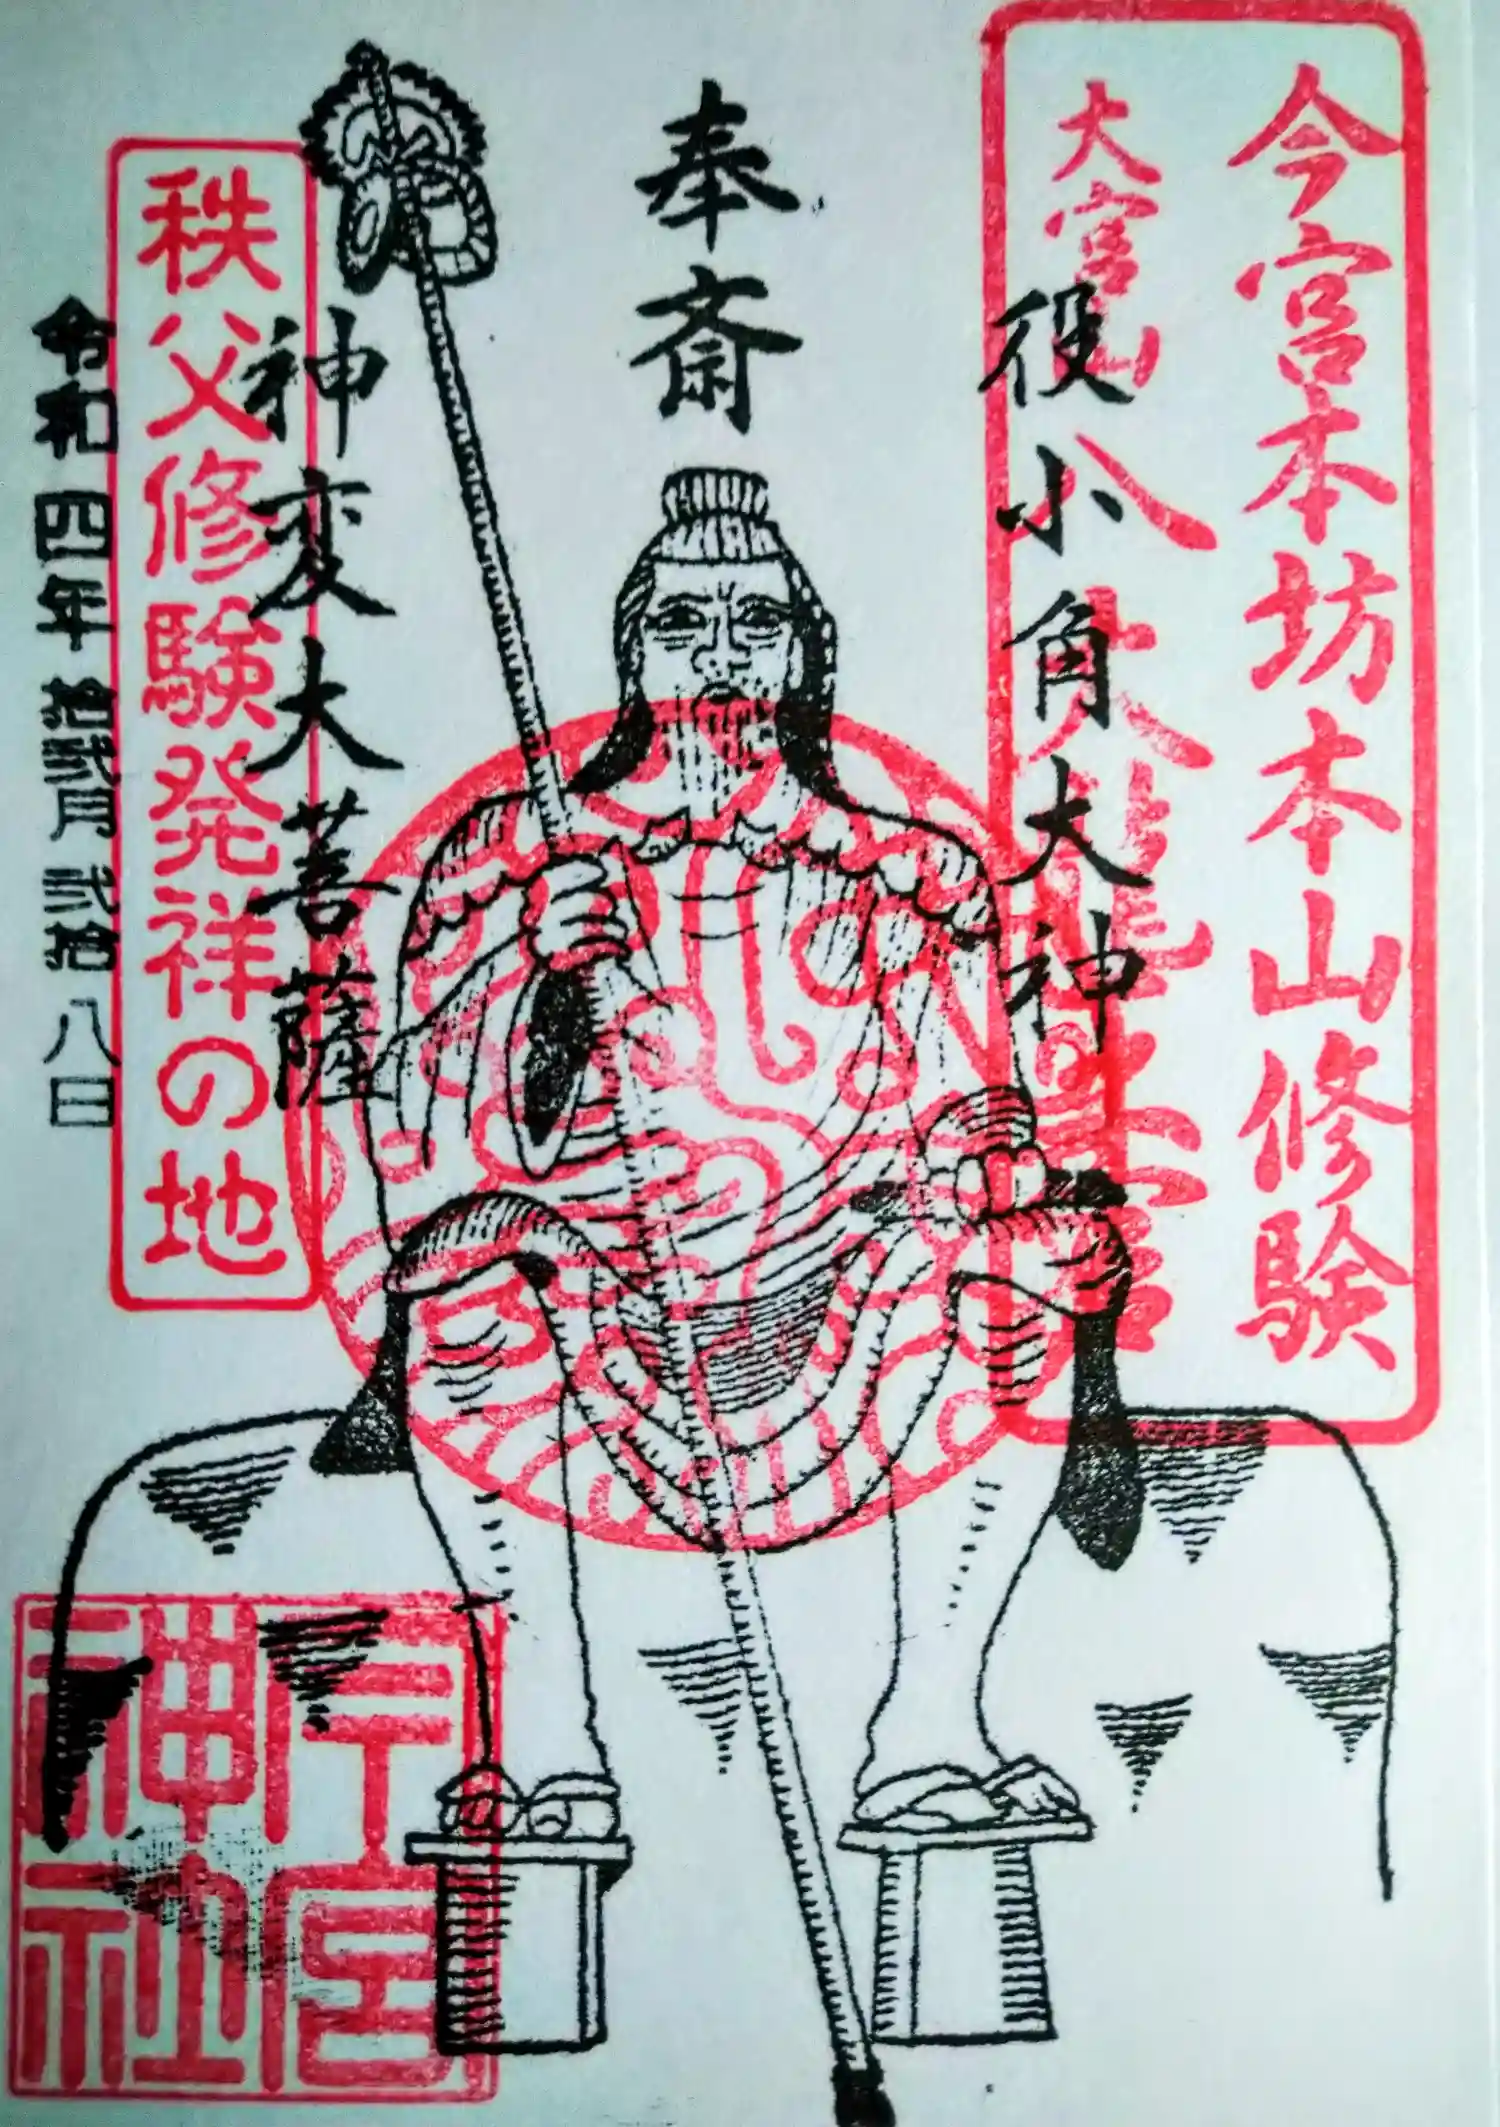 今宮本坊本山修験
大宮山八大龍王宮
役小角大神
奉斎
神変大菩薩
秩父修験発祥の地
令和四年拾弐月弐拾八日
今宮神社